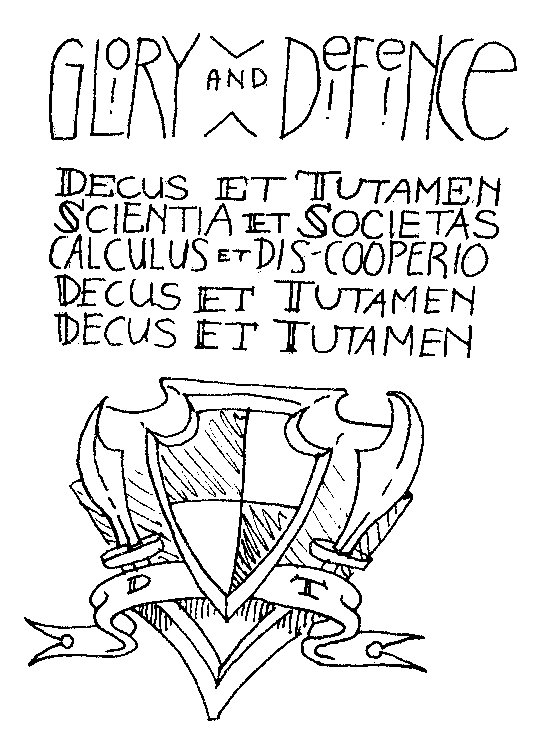 GLORY AND DEFENCE
DECUS ET TUTAMEN
SCIENTIA ET SOCIETAS
CALCULUS ET DIS-COOPERIO
DECUS ET TUTAMEN
DECUS ET TUTAMEN
D T